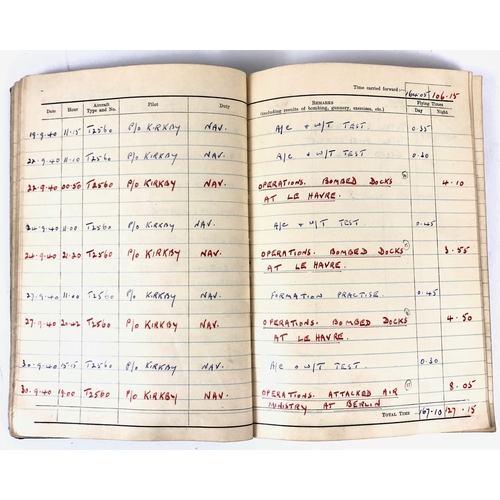 Time carried forward :— 164.05 106.15
Date Hour Aircraft Type and No. Pilot Duty Remarks (including results of bombing, gunnery, exercises, etc.) Flying Times Day Night
19.9.40 11.15 T2560 P/O KIRKBY NAV. A/C & W/T TEST. 0.35
22.9.40 11.00 T2560 P/O KIRKBY NAV. A/C & W/T TEST. 0.30
22.9.40 00.50 T2560 P/O KIRKBY NAV. OPERATIONS. BOMBED DOCKS 4.10
AT LE HAVRE.
24.9.40 11.00 T2560 P/O KIRKBY NAV. A/C & W/T TEST. 0.45
24.9.40 21.20 T2560 P/O KIRKBY NAV. OPERATIONS. BOMBED DOCKS 3.55
AT LE HAVRE.
27.9.40 11.00 T2560 P/O KIRKBY NAV. FORMATION PRACTISE. 0.45
27.9.40 20.42 T2560 P/O KIRKBY NAV. OPERATIONS. BOMBED DOCKS 4.50
AT LE HAVRE.
30.9.40 15.15 T2560 P/O KIRKBY NAV. A/C & W/T TEST. 0.30
30.9.40 19.00 T2560 P/O KIRKBY NAV. OPERATIONS. ATTACKED AIR 8.05
MINISTRY AT BERLIN
Total Time 167.10 127.15